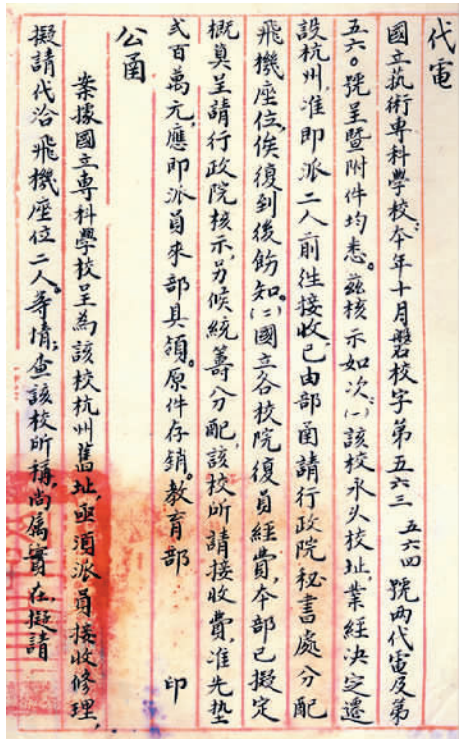 代電
國立執術專科學校：本年十月磐校字第五六三 五六四 號兩代電及第
五六〇號呈暨附件均悉。茲核示如次：(一)該校永久校址，業經決定還
設杭州，准即派二人前往接收，已由部函請行政院秘書處分配
飛機座位，俟復到後飭知。(二)國立各校院復員經費，本部已擬定
概算呈請行政院核示，另候統籌分配，該校所請接收費，准先墊
弍百萬元，應即派員來部具領。原件存銷。教育部 印
公函
案據國立專科學校呈為該校杭州舊址，亟須派員接收修理，
擬請代洽飛機座位二人。等情；查該校所稱，尚屬實在，擬請